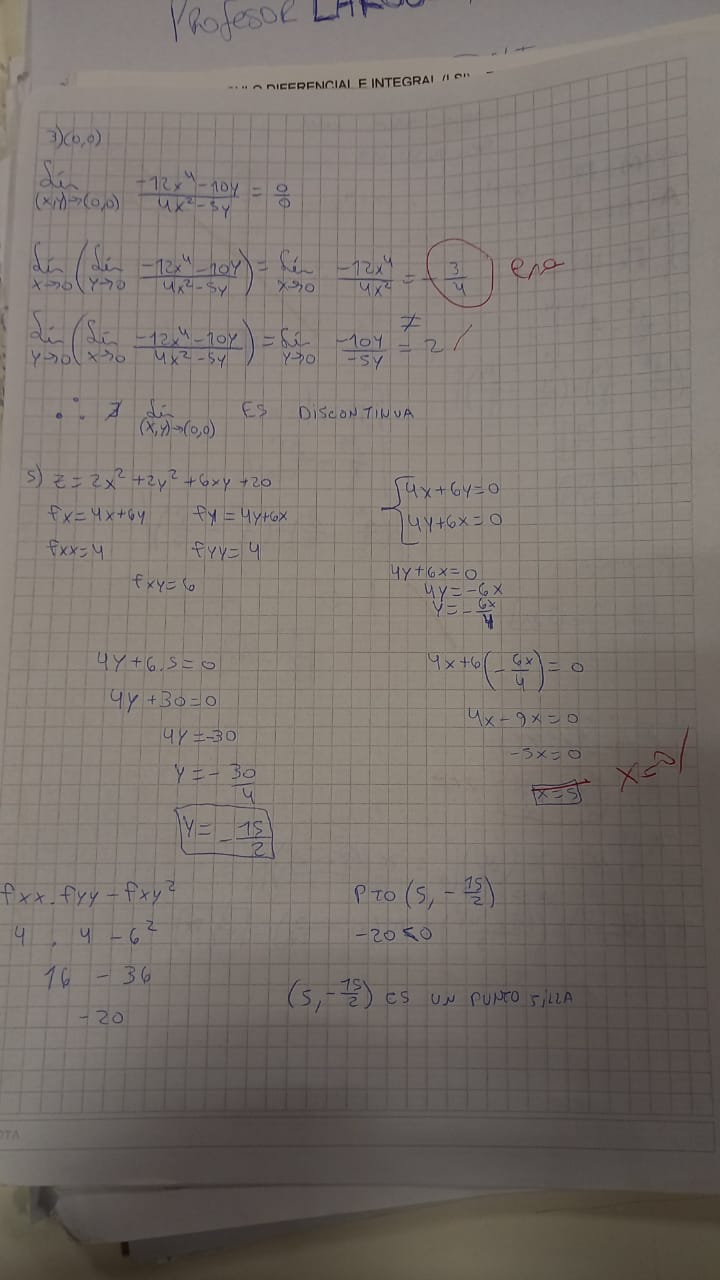 PROFESOR
DIFERENCIAL E INTEGRAL
3)(0,0)
Lim (x,y)→(0,0) -12x⁴-10y / 4x²-5y = 0/0
Lim x→0 (Lim y→0 -12x⁴-10y / 4x²-5y) = Lim x→0 -12x⁴ / 4x² = -3/4 era
≠
Lim y→0 (Lim x→0 -12x⁴-10y / 4x²-5y) = Lim y→0 -10y / -5y = 2 /
∴ ∄ Lim (x,y)→(0,0) ES DISCONTINUA
5) z=2x²+2y²+6xy+20
fx=4x+6y fy=4y+6x
fxx=4 fyy=4
fxy=6
{4x+6y=0
4y+6x=0
4y+6x=0
4y=-6x
y=-6x/4
4x+6(-6x/4)=0
4x-9x=0
-5x=0
x=5 x=0/
4y+6.5=0
4y+30=0
4y=-30
y=-30/4
y=-15/2
fxx.fyy-fxy²
4 . 4 - 6²
16 - 36
-20
PTO (5,-15/2)
-20<0
(5,-15/2) ES UN PUNTO SILLA
OTA